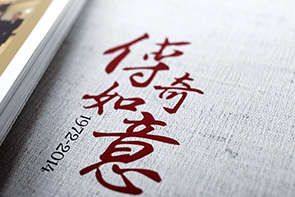 傳奇
如意
1972-2014